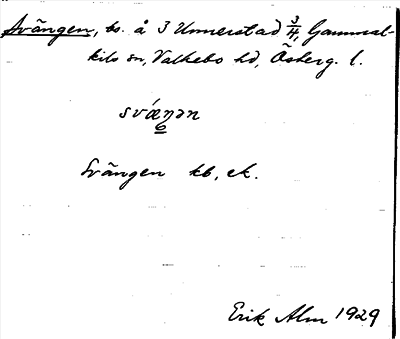 Svängen, bs. å 3 Unnerstad 3/4, Gammal-
kils sn, Valkebo hd, Österg. l.
svǽŋən
6
Svängen kb, ek.
Erik Alm 1929